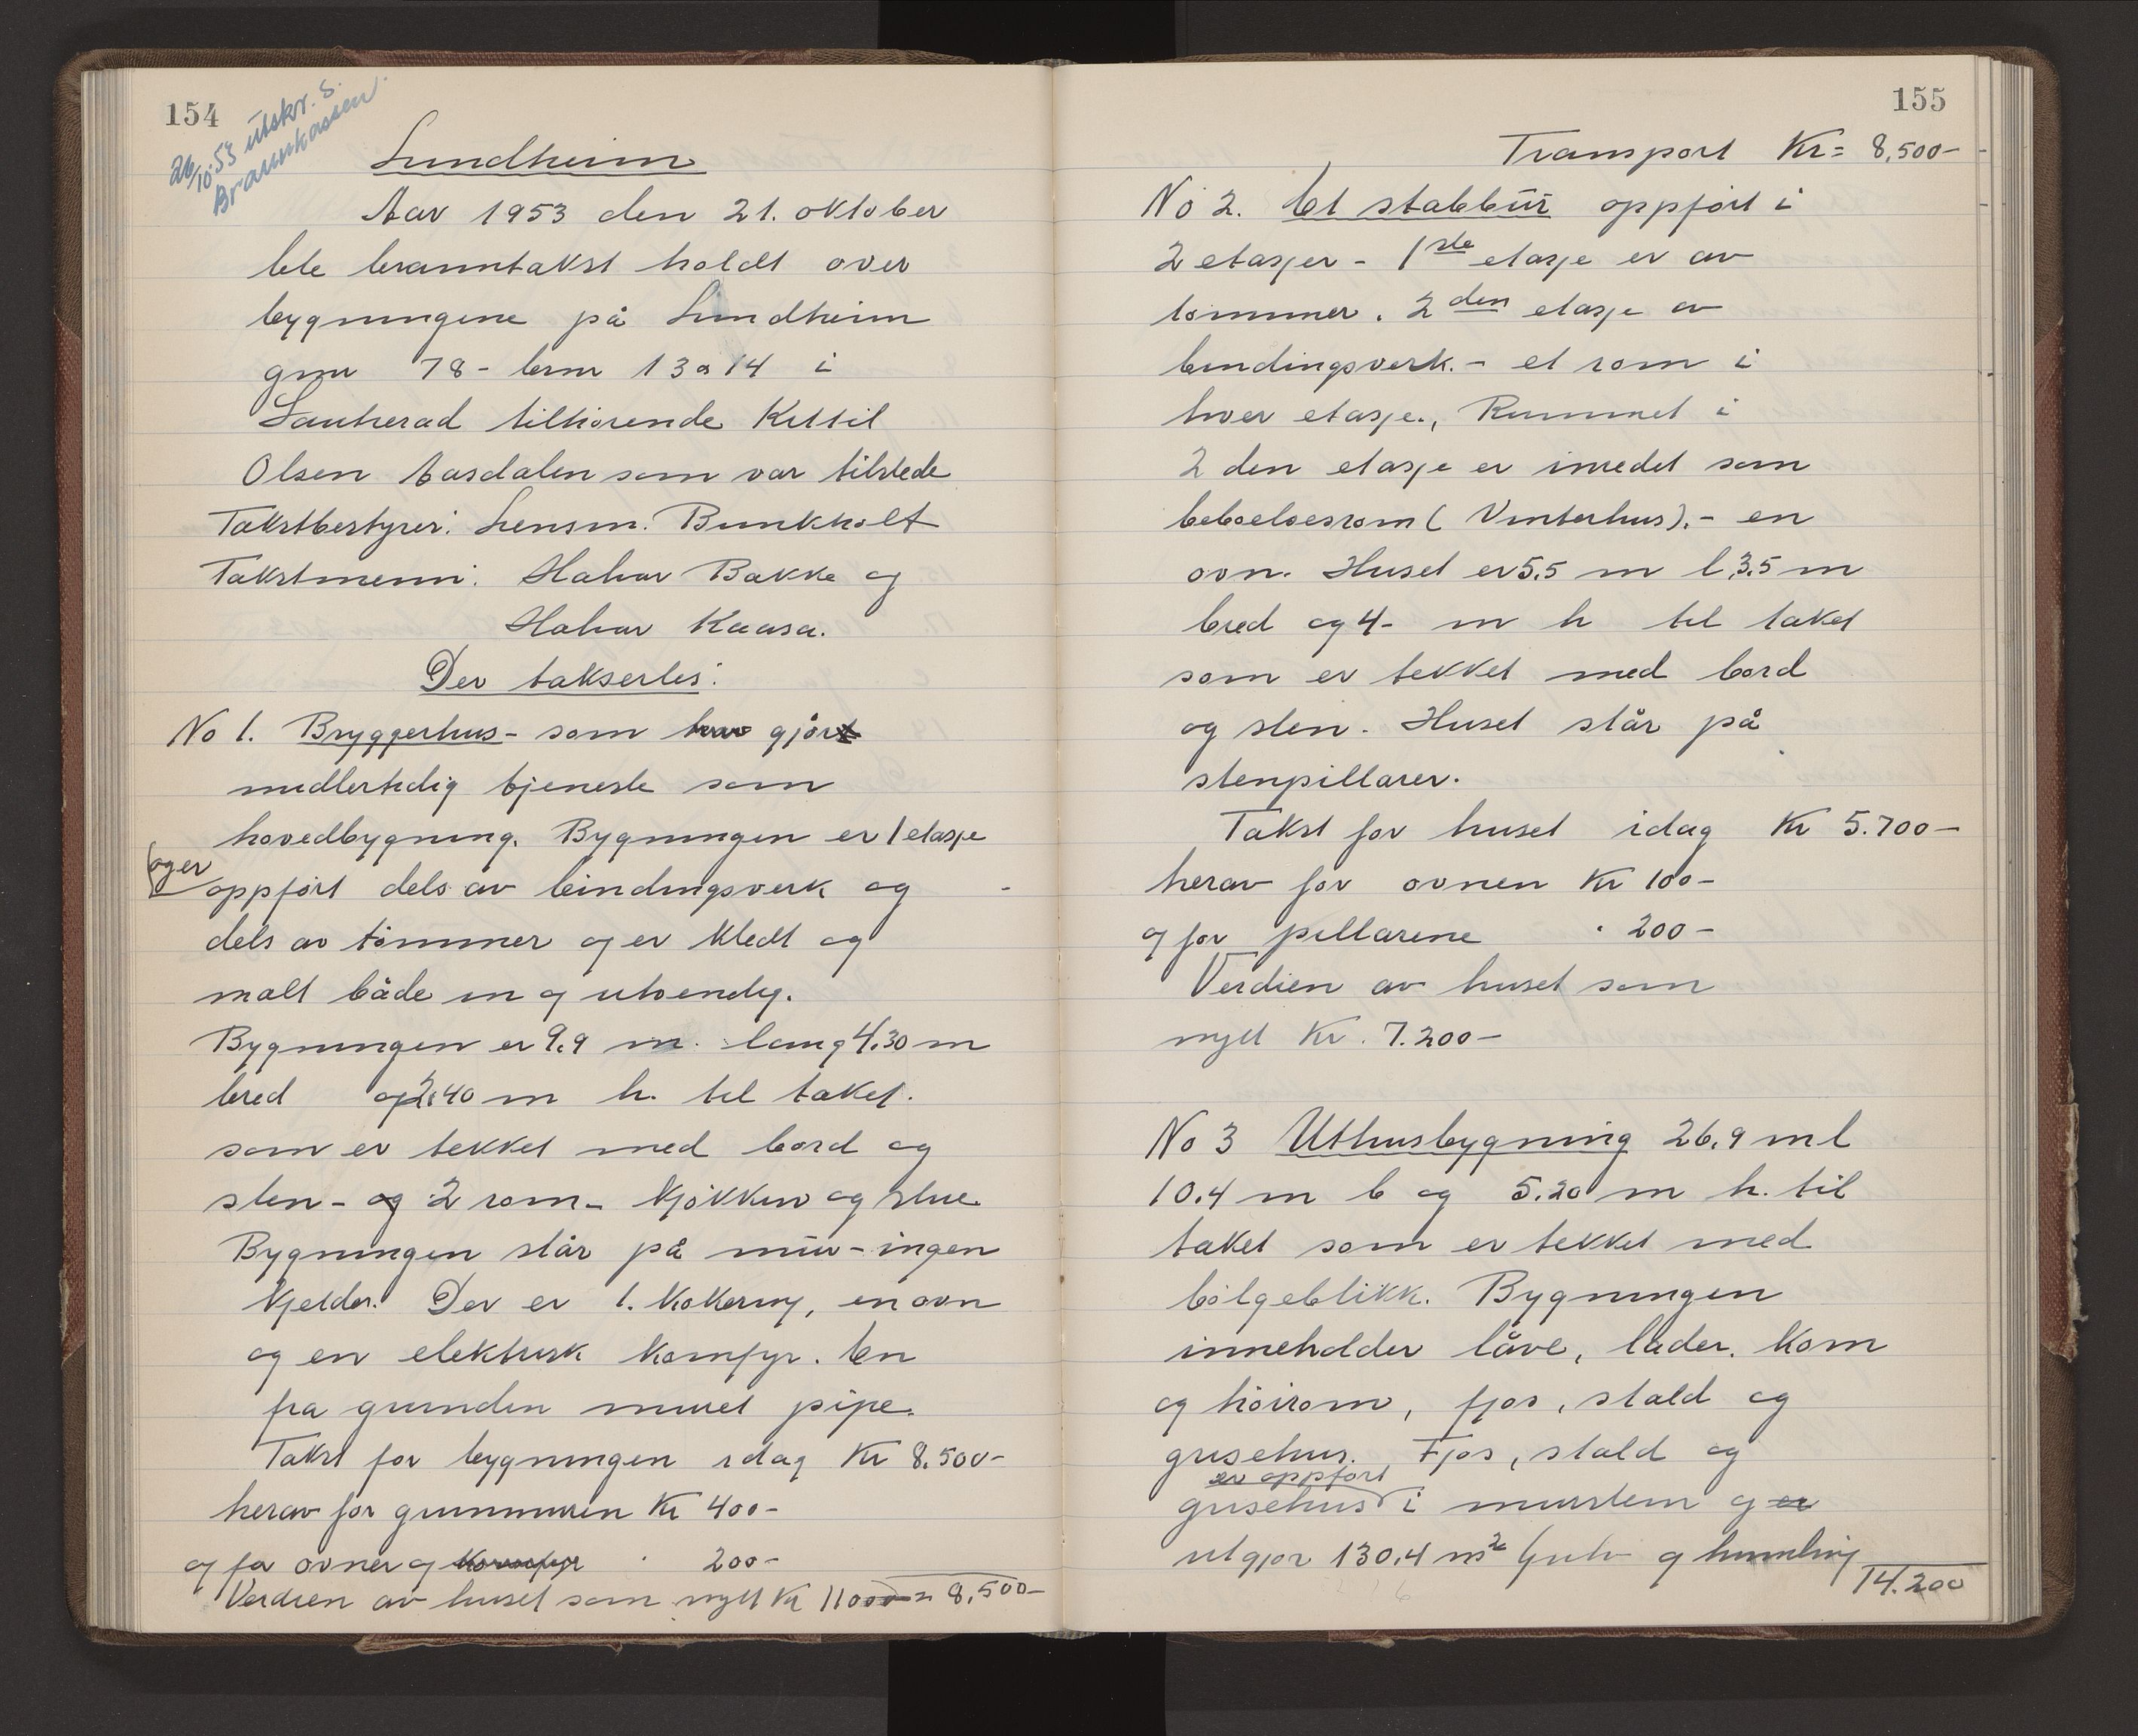 154
26/10.53 utskr. S.
Brannkassen.
Lundheim
Aar 1953 den 21. oktober
ble branntakst holdt over
bygningene på Lundheim
gnr 78 - brnr 13 a 14 i
Sauherad tilhörende Kittil
Olsen Aasdalen som var tilstede
Takstbestyrer: Lensm. Bunkholt
Takstmenn: Halvor Bakke og
Halvor Kaasa.
Der taksertes:
No 1. Bryggerhus - som har gjørt
midlertidig tjeneste som
hovedbygning. Bygningen er 1 etasje
og er
oppfört dels av bindingsverk og -
dels av tömmer og er kledt og
malt både in og utvendig.
Bygningen er 9.9 m. lang 4.30 m
bred og 2.40 m h. til taket.
som er tekket med bord og
sten - og 2 rom - kjökken og stue
Bygningen står på mur - ingen
kjelder. Der er 1. kokering, en ovn
og en elektrisk komfyr. En
fra grunden muret pipe.
Takst for bygningen idag Kr 8.500-
herav for grunnmuren Kr 400-
og for ovner og komfyr " 200-
Verdien av huset som nytt Kr 11000 = 8,500-
155
Transport Kr = 8,500-
No 2. Et stabbur oppfört i
2 etasjer - 1ste etasje er av
tömmer. 2den etasje av
bindingsverk. - et rom i
hver etasje., Rummet i
2 den etasje er inredet som
beboelsesrom ( Vinterhus). - en
ovn. Huset er 5.5 m l. 3.5 m
bred og 4- m h til taket
som er tekket med bord
og sten. Huset står på
stenpillarer.
Takst for huset idag Kr 5.700-
herav for ovnen Kr 100-
og for pillarene " 200-
Verdien av huset som
nytt Kr. 7.200-
No 3 Uthusbygning 26.9 m l
10.4 m b og 5.20 m h. til
taket som er tekket med
bölgeblikk. Bygningen
inneholder låve, lader. korn
og höirom, fjos, stald og
grisehus. Fjos, stald og
er oppfört
grisehus i murstein og er
utgjor 130,4 m2 Gulv og himling
14.200